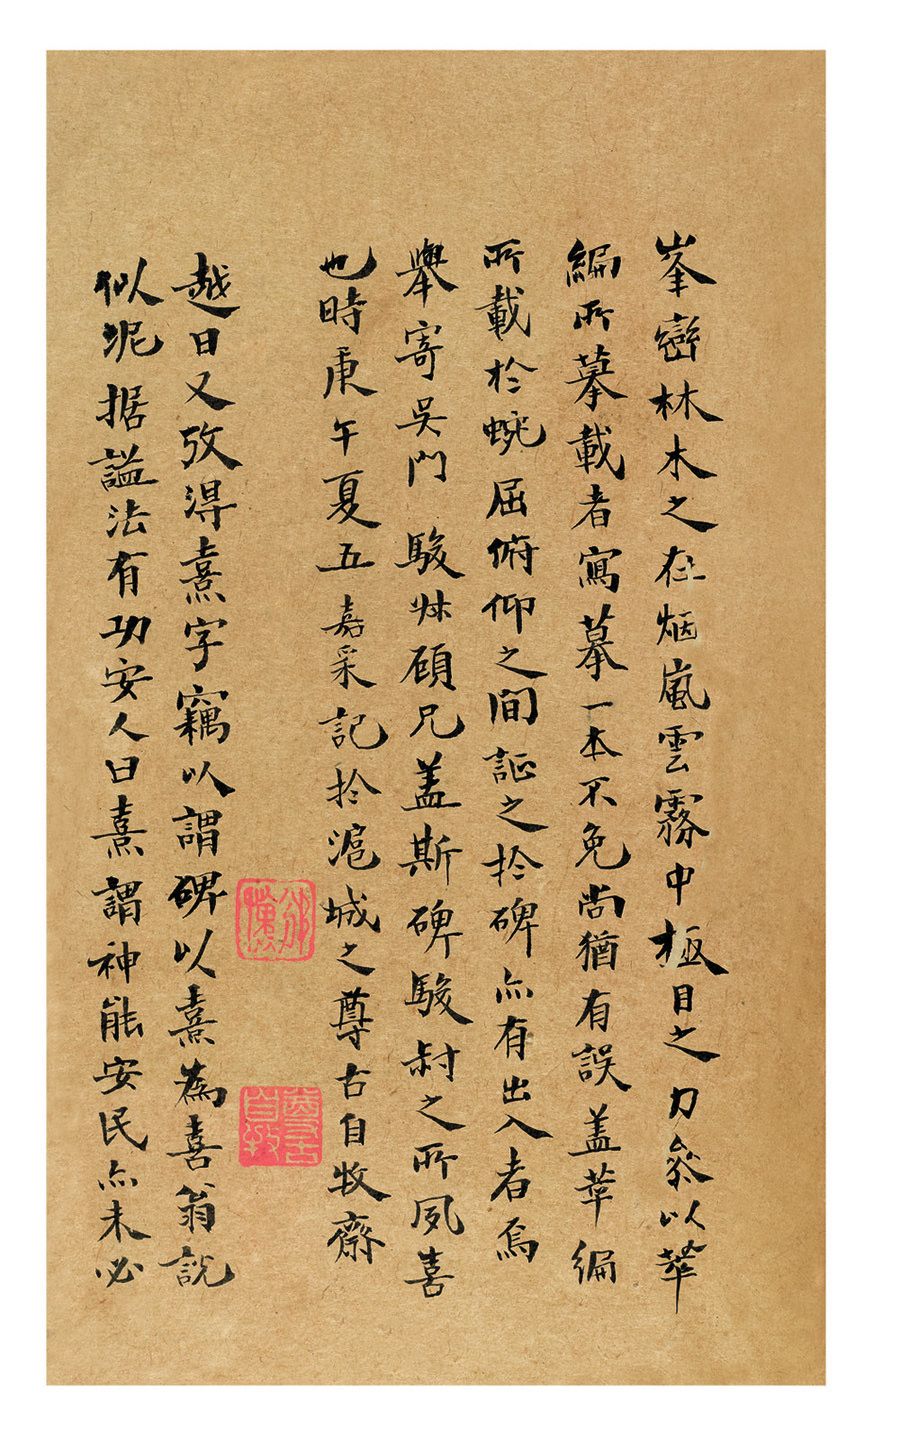 峯巒林木之在烟嵐雲霧中極目之力叅以萃
編所摹載者寫摹一本不免尚猶有誤蓋萃編
所載於蜿屈俯仰之間証之於碑亦有出入者焉
舉寄吳門 駿叔顧兄蓋斯碑駿尌之所夙喜
也時庚午夏五嘉采記於滬城之尊古自牧齋
越日又攷得熹字竊以謂碑以熹爲喜翁說
似泥据謚法有功安人曰熹謂神能安民亦未必
尊古自牧